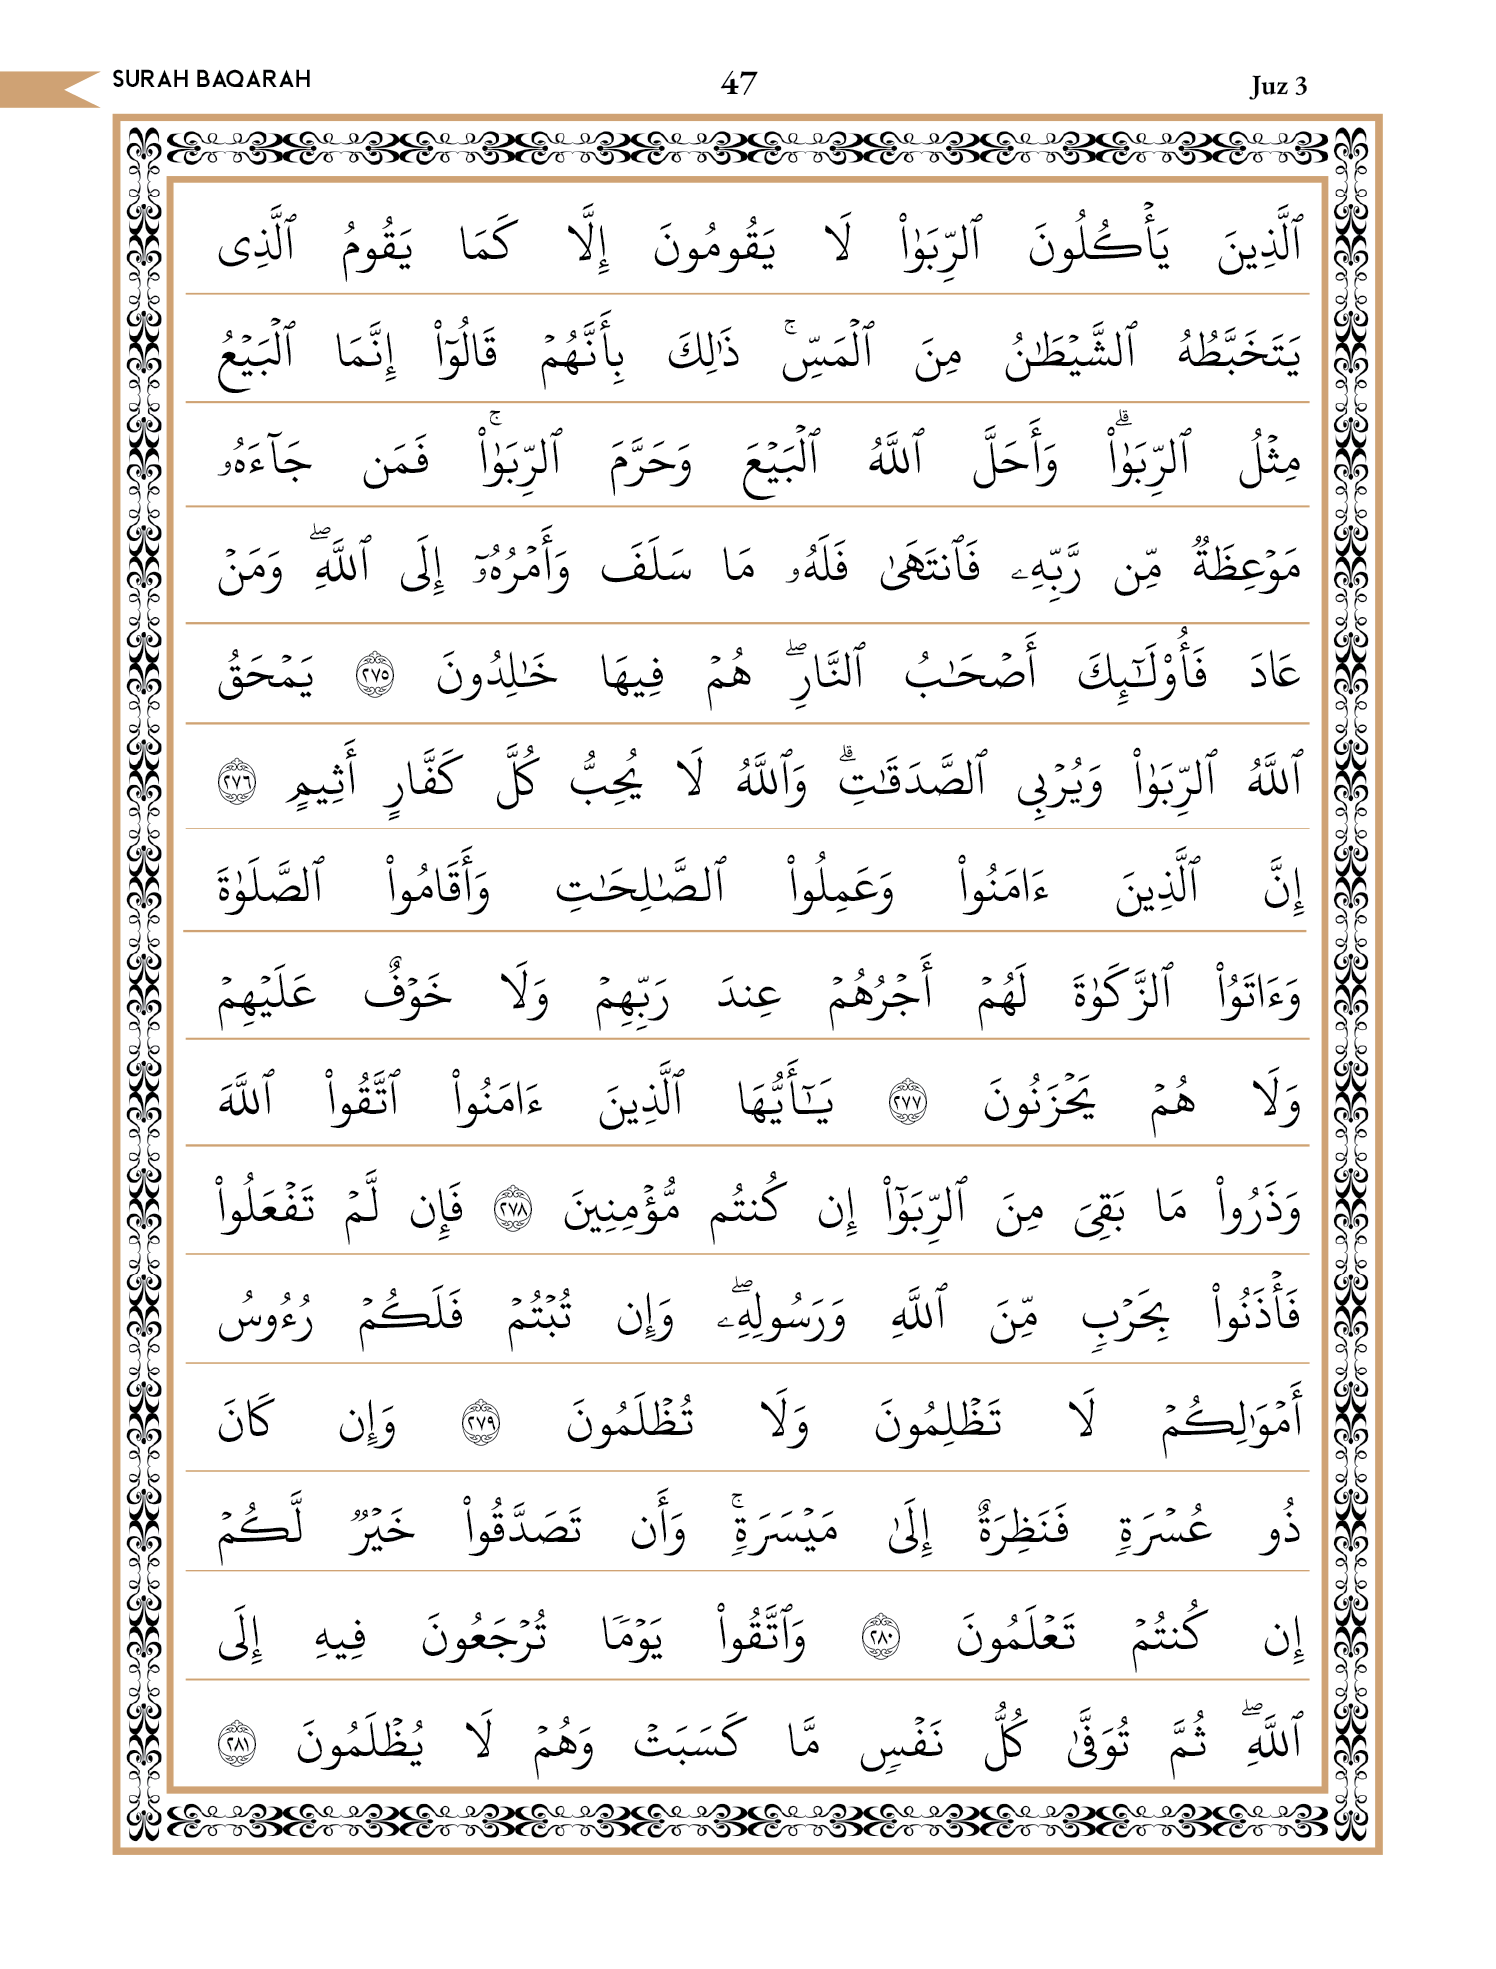 SURAH BAQARAH
47
Juz 3
ٱلَّذِينَ يَأۡكُلُونَ ٱلرِّبَوٰاْ لَا يَقُومُونَ إِلَّا كَمَا يَقُومُ ٱلَّذِى
يَتَخَبَّطُهُ ٱلشَّيۡطَـٰنُ مِنَ ٱلۡمَسِّۚ ذَٰلِكَ بِأَنَّهُمۡ قَالُوٓاْ إِنَّمَا ٱلۡبَيۡعُ
مِثۡلُ ٱلرِّبَوٰاْۗ وَأَحَلَّ ٱللَّهُ ٱلۡبَيۡعَ وَحَرَّمَ ٱلرِّبَوٰاْۚ فَمَن جَآءَهُۥ
مَوۡعِظَةٌ مِّن رَّبِّهِۦ فَٱنتَهَىٰ فَلَهُۥ مَا سَلَفَ وَأَمۡرُهُۥٓ إِلَى ٱللَّهِۖ وَمَنۡ
عَادَ فَأُوْلَـٰٓئِكَ أَصۡحَـٰبُ ٱلنَّارِۖ هُمۡ فِيهَا خَـٰلِدُونَ ٢٧٥ يَمۡحَقُ
ٱللَّهُ ٱلرِّبَوٰاْ وَيُرۡبِى ٱلصَّدَقَـٰتِۗ وَٱللَّهُ لَا يُحِبُّ كُلَّ كَفَّارٍ أَثِيمٍ ٢٧٦
إِنَّ ٱلَّذِينَ ءَامَنُواْ وَعَمِلُواْ ٱلصَّـٰلِحَـٰتِ وَأَقَامُواْ ٱلصَّلَوٰةَ
وَءَاتَوُاْ ٱلزَّكَوٰةَ لَهُمۡ أَجۡرُهُمۡ عِندَ رَبِّهِمۡ وَلَا خَوۡفٌ عَلَيۡهِمۡ
وَلَا هُمۡ يَحۡزَنُونَ ٢٧٧ يَـٰٓأَيُّهَا ٱلَّذِينَ ءَامَنُواْ ٱتَّقُواْ ٱللَّهَ
وَذَرُواْ مَا بَقِىَ مِنَ ٱلرِّبَوٰٓاْ إِن كُنتُم مُّؤۡمِنِينَ ٢٧٨ فَإِن لَّمۡ تَفۡعَلُواْ
فَأۡذَنُواْ بِحَرۡبٍ مِّنَ ٱللَّهِ وَرَسُولِهِۦۖ وَإِن تُبۡتُمۡ فَلَكُمۡ رُءُوسُ
أَمۡوَٰلِكُمۡ لَا تَظۡلِمُونَ وَلَا تُظۡلَمُونَ ٢٧٩ وَإِن كَانَ
ذُو عُسۡرَةٍ فَنَظِرَةٌ إِلَىٰ مَيۡسَرَةٍۚ وَأَن تَصَدَّقُواْ خَيۡرٌ لَّكُمۡ
إِن كُنتُمۡ تَعۡلَمُونَ ٢٨٠ وَٱتَّقُواْ يَوۡمًا تُرۡجَعُونَ فِيهِ إِلَى
ٱللَّهِۖ ثُمَّ تُوَفَّىٰ كُلُّ نَفۡسٍ مَّا كَسَبَتۡ وَهُمۡ لَا يُظۡلَمُونَ ٢٨١